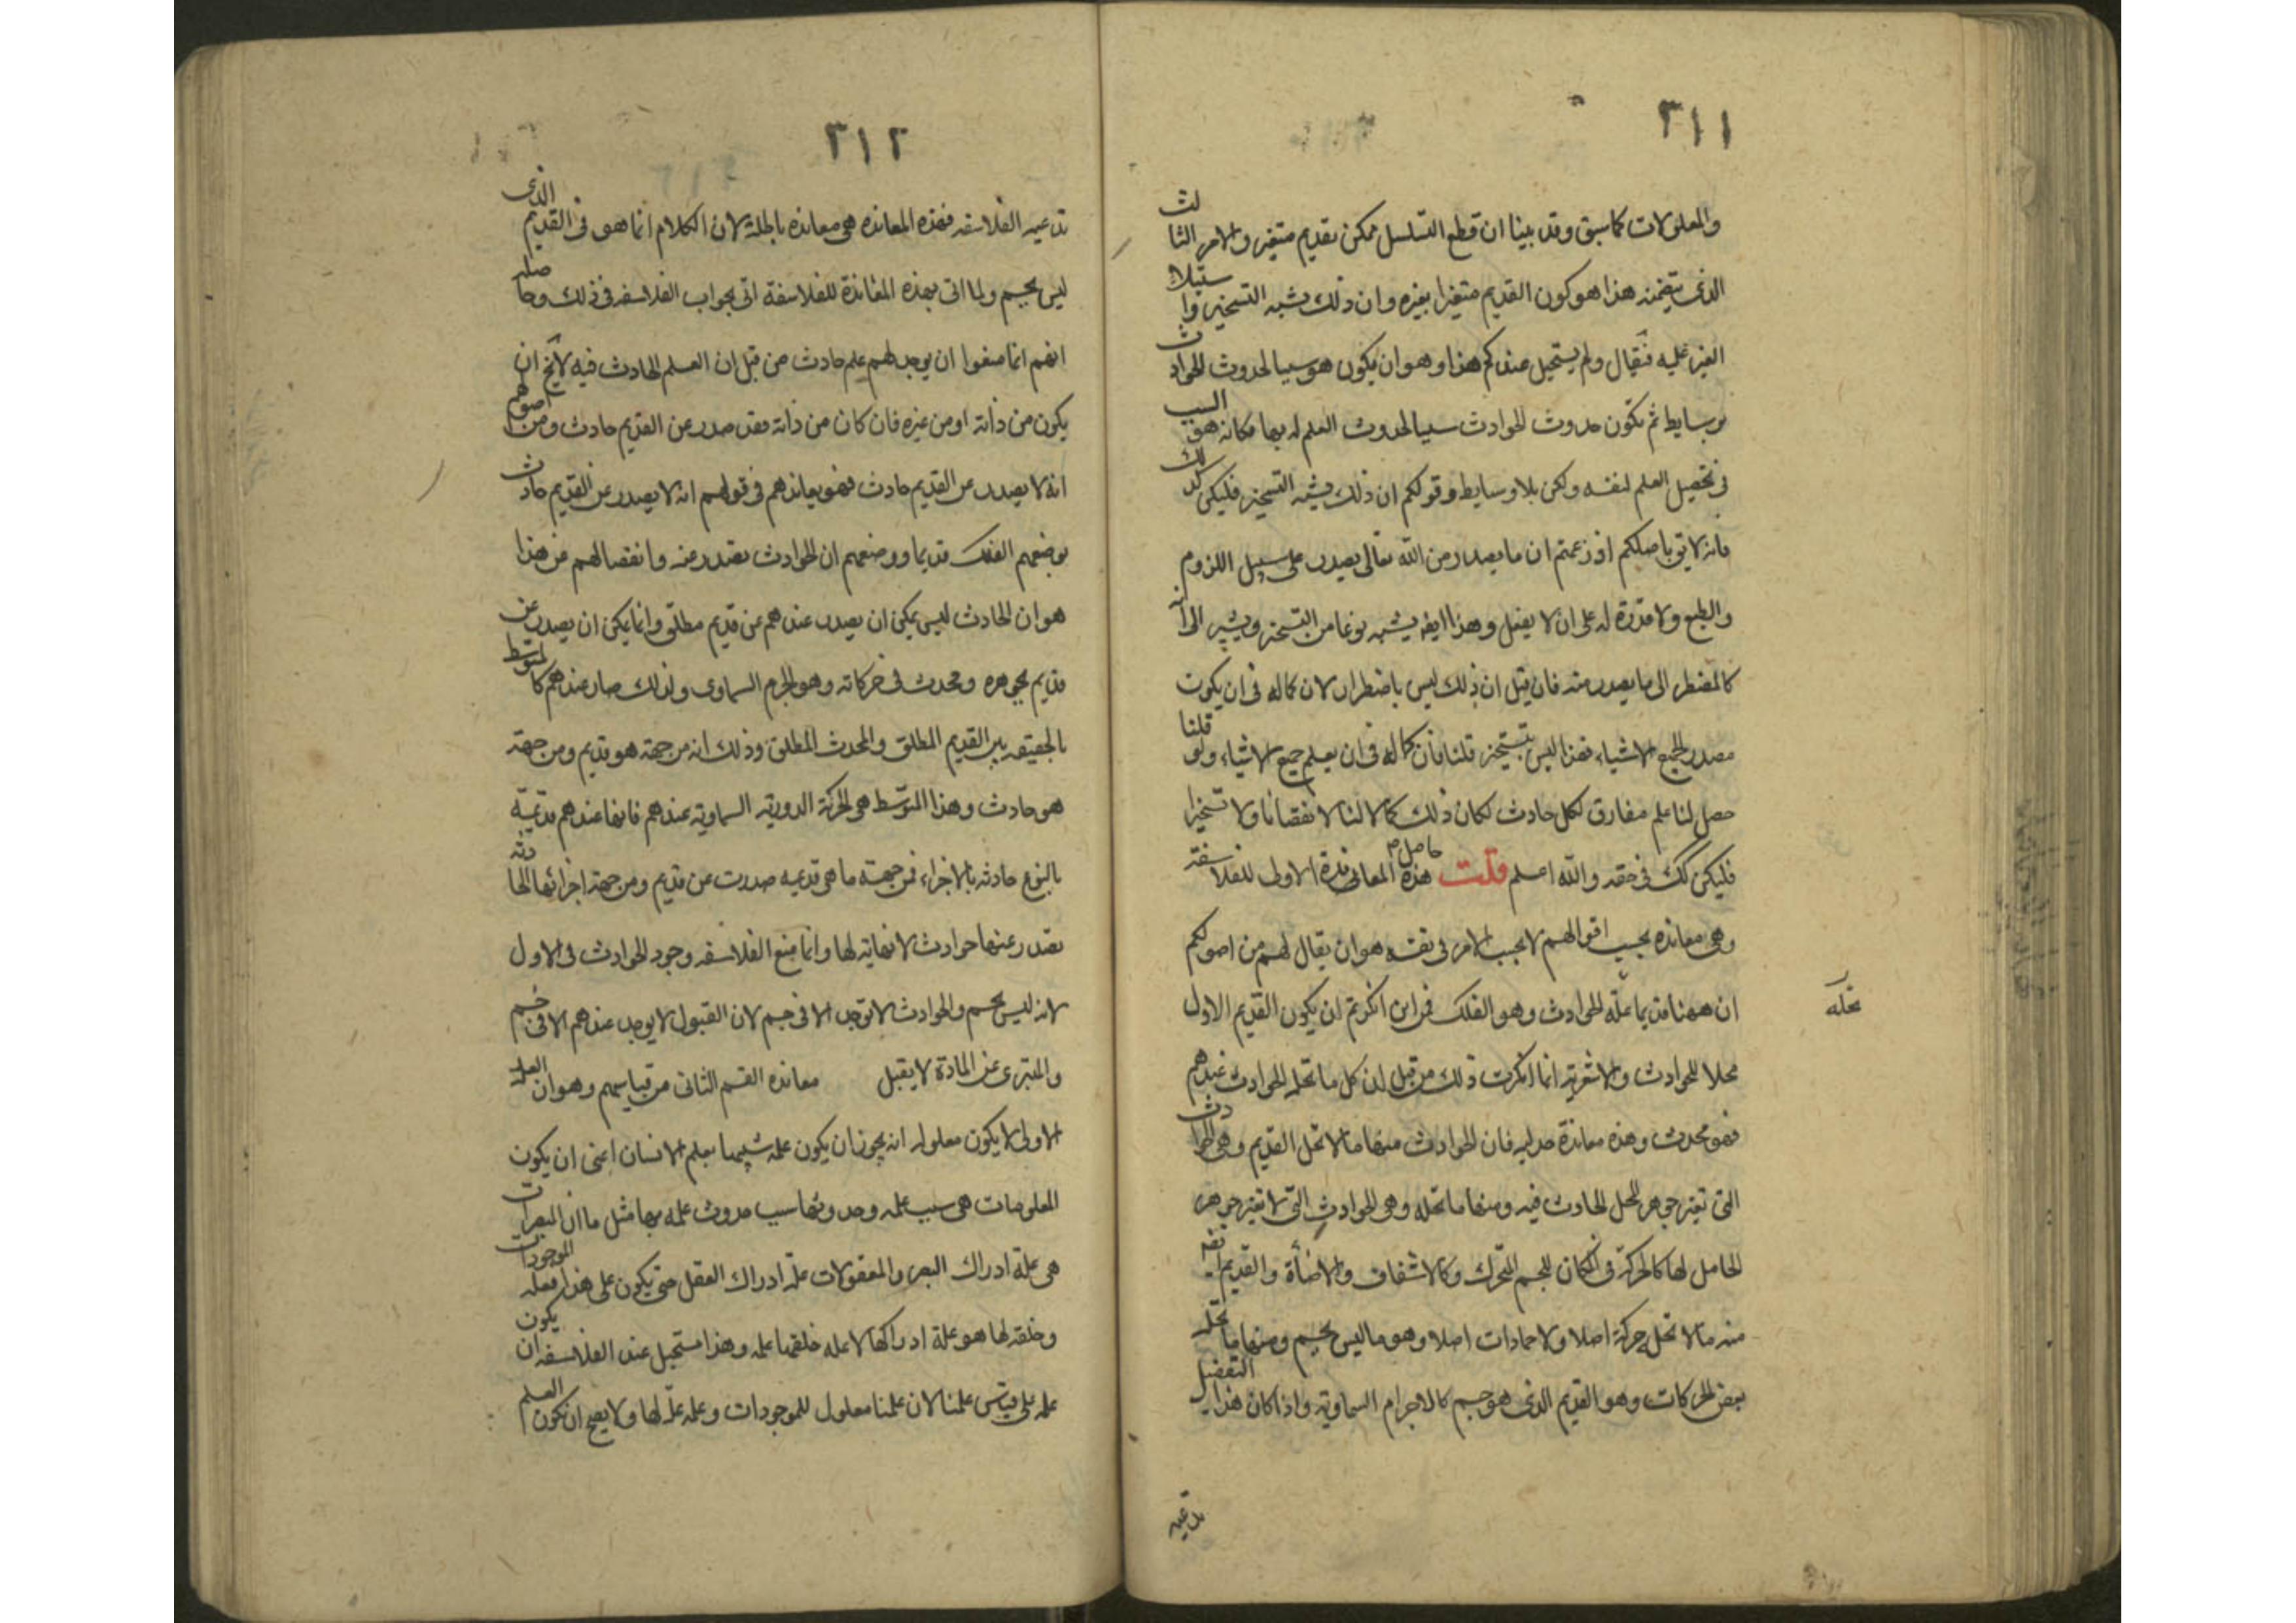 ٣١١
والمعلولات كما سبق وقد بينا ان قطع التسلسل ممكن بقديم متغير والامر الثالث
الذى يتضمنه هذا هو كون القديم متغيرا بغيره وان ذلك يشبه التسخير واستيلاء
الغير عليه فيقال ولم يستحيل عندكم هذا وهو ان يكون هو سببا لحدوث الحوادث
بوسايط ثم تكون حدوث الحوادث سببا لحدوث العلم له بها فكانه هو السبب
فى تحصيل العلم لنفسه ولكن بلا وسايط وقولكم ان ذلك يشبه التسخير فليكن كذلك
فانه لايق باصلكم اذ زعمتم ان ما يصدر من الله تعالى يصدر على سبيل اللزوم
والطبع ولا قدرة له على ان لا يفعل وهذا ايضا يشبه نوعا من التسخير ويشير الى انه
كالمضطر الى ما يصدر منه فان قيل ان ذلك ليس باضطرار لان كماله فى ان يكون
مصدر الجميع الاشياء فهذا ليس بتسخير قلنا فان كماله فى ان يعلم جميع الاشياء ولو قلنا
حصل لنا علم مفارق لكل حادث لكان ذلك كمالا لنا لا نقصانا ولا تسخيرا
فليكن كك فى حقه والله اعلم قلت حاصل هذه المعاندة الاولى للفلاسفة
وهى معانده بحسب اقوالهم لا بحسب الامر فى نفسه هو ان يقال لهم من اصولكم
ان ههنا قديما تحلّه الحوادث وهو الفلك فمن اين انكرتم ان يكون القديم الاول
تحله
محلا للحوادث والاشعرية انما انكرت ذلك من قبل ان كل ما تحله الحوادث عندهم
فهو محدث وهذه معاندة جدليه فان الحوادث منها ما لا تحل القديم وهى الحوادث
التى تغير جوهر المحل الحادث فيه ومنها ما تحله وهى الحوادث التى لا تغير جوهر
الحامل لها كالحركة فى المكان للجسم المتحرك وكالاشفاف والاضأة والقديم ايضا
منه ما لا تحله حركة اصلا ولا حادات اصلا وهو ما ليس بجسم ومنها ما تحله
بعض الحركات وهو القديم الذى هو جسم كالاجرام السماوية واذا كان هذا التفصيل
تدعيه
٣١٢
تدعيه الفلاسفه فهذه المعانده هى معانده باطلة لان الكلام انما هو فى القديم الذى
ليس بجسم ولما اتى بهذه المعاندة للفلاسفة اتى بجواب الفلاسفه فى ذلك وحاصله
انهم انما منعوا ان يوجد لهم علم حادث من قبل ان العلم الحادث فيه لا يخ ان
يكون من ذاته او من غيره فان كان من ذاته فقد صدر عن القديم حادث ومن اصولهم
انه لا يصدر عن القديم حادث فهو يعاندهم فى قولهم انه لا يصدر عن القديم حادث
بوضعهم الفلك قديما ووضعهم ان الحوادث تصدر عنه وانفصالهم من هذا
هو ان الحادث ليس يمكن ان يصدر عندهم عن قديم مطلق وانما يمكن ان يصدر عن
قديم بجوهره ومحدث فى حركاته وهو الجرم السماوى ولذلك صار عندهم كالمتوسط
بالحقيقه بين القديم المطلق والمحدث المطلق وذلك انه من جهة هو قديم ومن جهة
هو حادث وهذا المتوسّط هى الحركة الدوريّة السماويّة عندهم فانها عندهم قديمة
بالنوع حادثه بالاجزاء فمن جهة ما هى قديمه صدرت عن قديم ومن جهة اجزائها الحادثه
تصدر عنها حوادث لا نهاية لها وانما منع الفلاسفه وجود الحوادث فى الاول
لانه ليس بجسم والحوادث لا توجد الا فى جسم لان القبول لا يوجد عندهم الا فى جسم
والمتبرى عن المادة لا يقبل معانده القسم الثانى من قياسهم وهو ان العله
الاولى لا يكون معلوله انه يجوز ان يكون علمه شبيها بعلم الانسان اعنى ان يكون
المعلومات هى سبب علمه وحدوثها سبب حدوث علمه بها مثل ما ان المبصرات
هى علة ادراك البصر والمعقولات علة ادراك العقل حتى يكون على هذا فعله الموجودات
وخلقه لها هو علة ادراكها لا عله خلقها علمه وهذا مستحيل عند الفلاسفه ان يكون
علمه على قياس علمنا لان علمنا معلول للموجودات وعلمه علّة لها ولا يصح ان يكون العلم